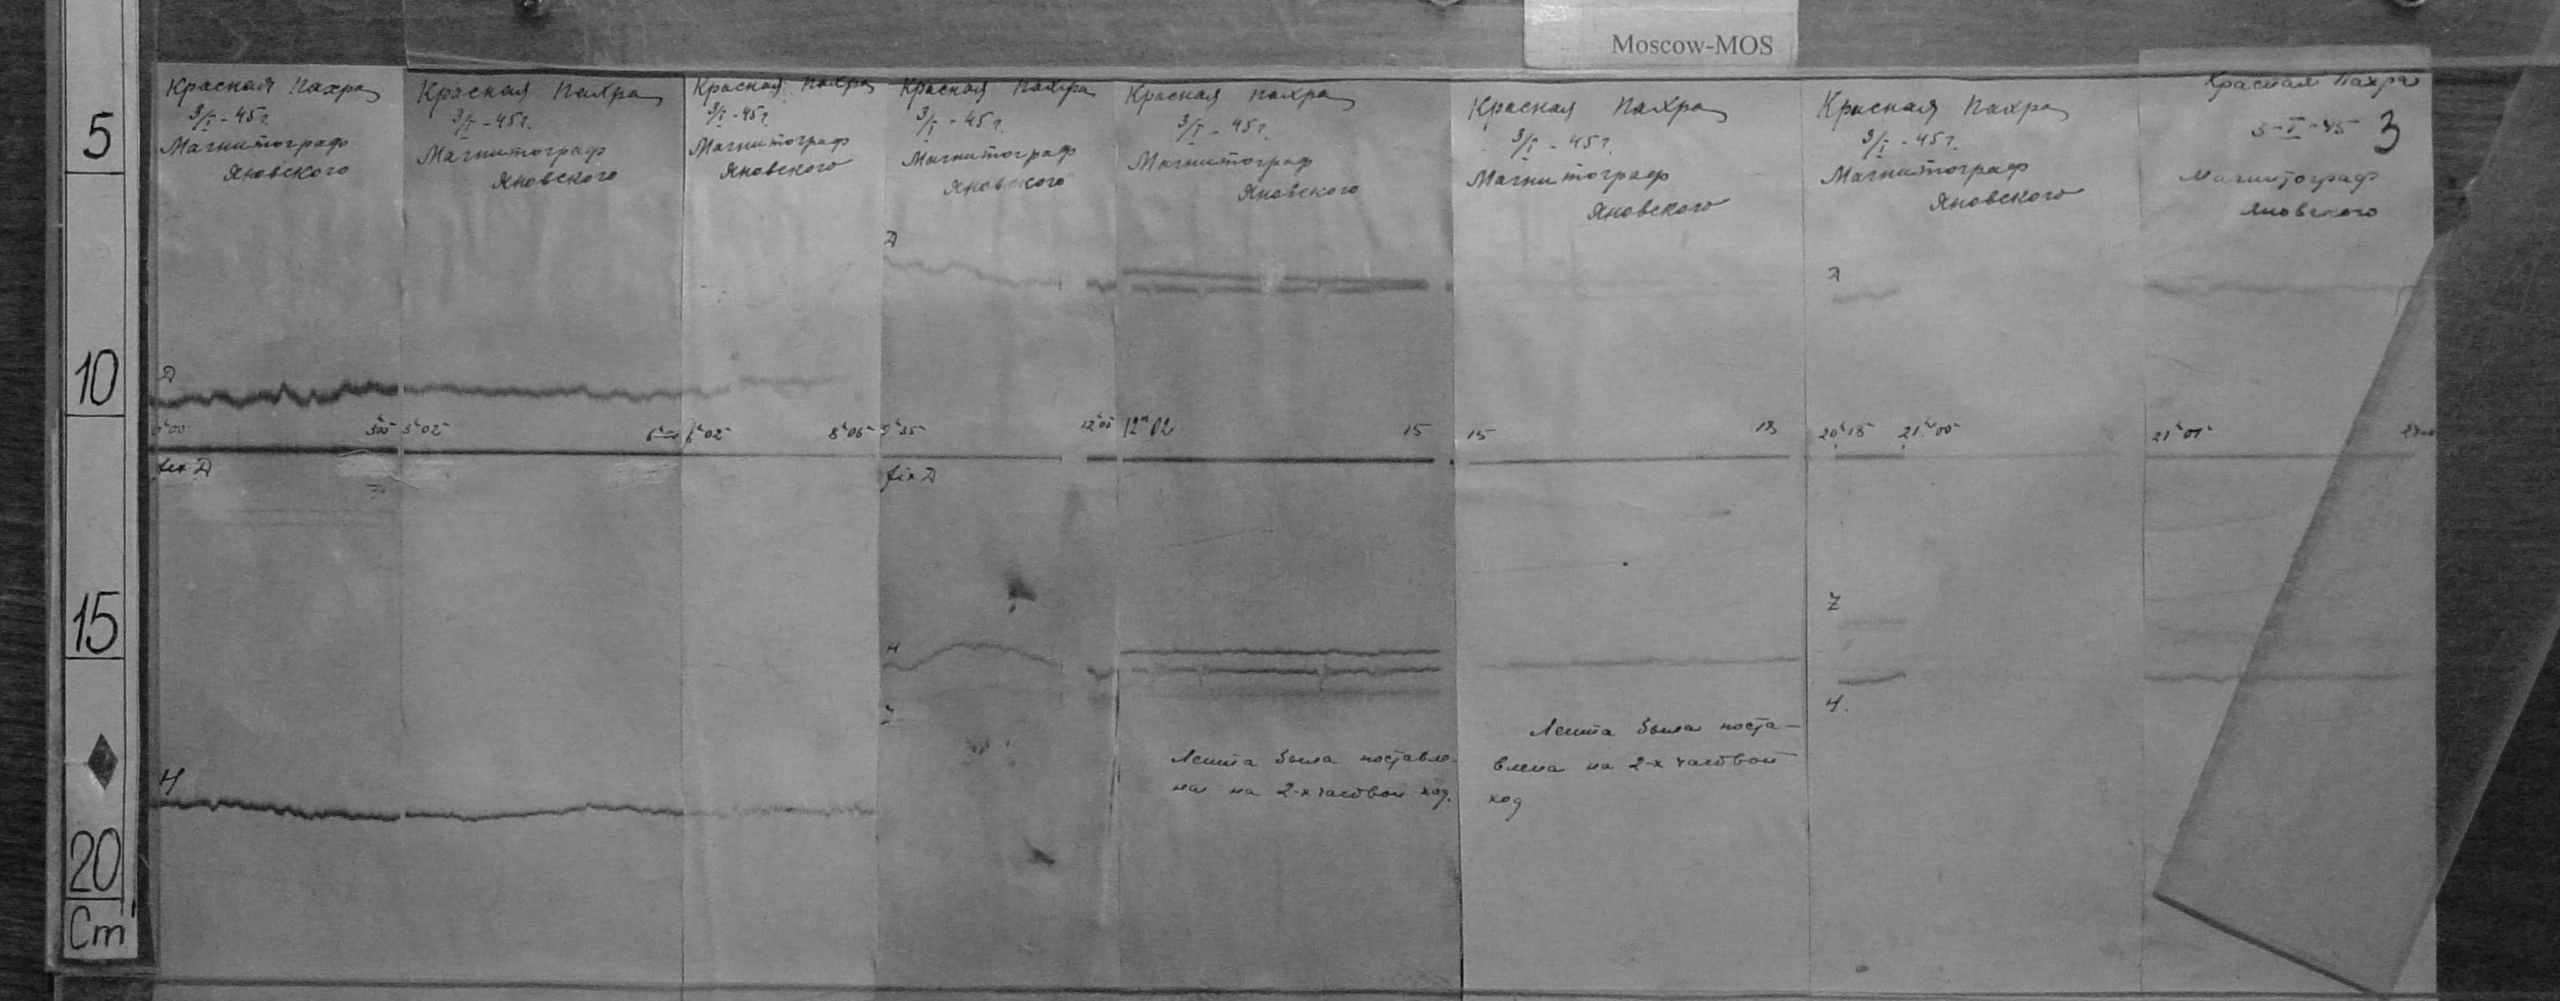 Moscow-MOS
5
10
15
20
Cm
Красная Пахра
3/I - 45г.
Магнитограф
Яновского
Д
0ʰ00 3ʰ00
fix Д
Н
Красная Пахра
3/I - 45г.
Магнитограф
Яновского
3ʰ02 6ʰ00
Красная Пахра
3/I - 45г.
Магнитограф
Яновского
6ʰ02 8ʰ05
Красная Пахра
3/I - 45г.
Магнитограф
Яновского
Д
9ʰ35 12ʰ00
fix Д
Н
Z
Красная Пахра
3/I - 45г.
Магнитограф
Яновского
12ʰ02 15
Лента была поставле-
на на 2-х часовой ход.
Красная Пахра
3/I - 45г.
Магнитограф
Яновского
15 18
Лента была поста-
влена на 2-х часовой
ход
Красная Пахра
3/I - 45г.
Магнитограф
Яновского
Д
20ʰ18 21ʰ00
Z
Н.
Красная Пахра
3-I-45 3
Магнитограф
Яновского
21ʰ01